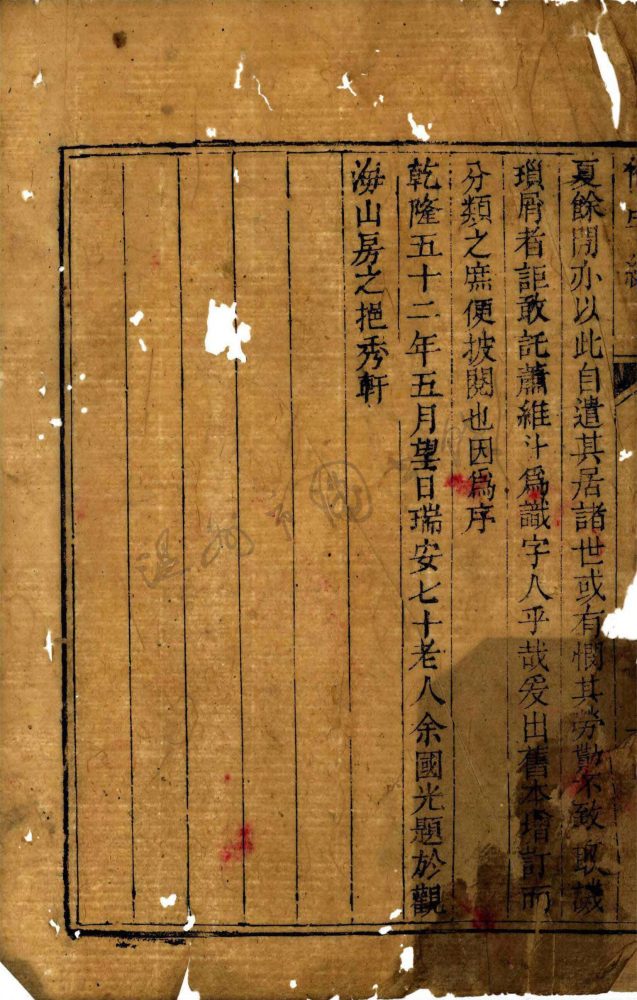 夏餘閒亦以此自遣其居諸世或有憫其勞勩不致取譏
瑣屑者詎敢託蕭維斗爲識字人乎哉爰出舊本增訂而
分類之庶便披閱也因爲序
乾隆五十二年五月望日瑞安七十老人余國光題於觀
海山房之挹秀軒